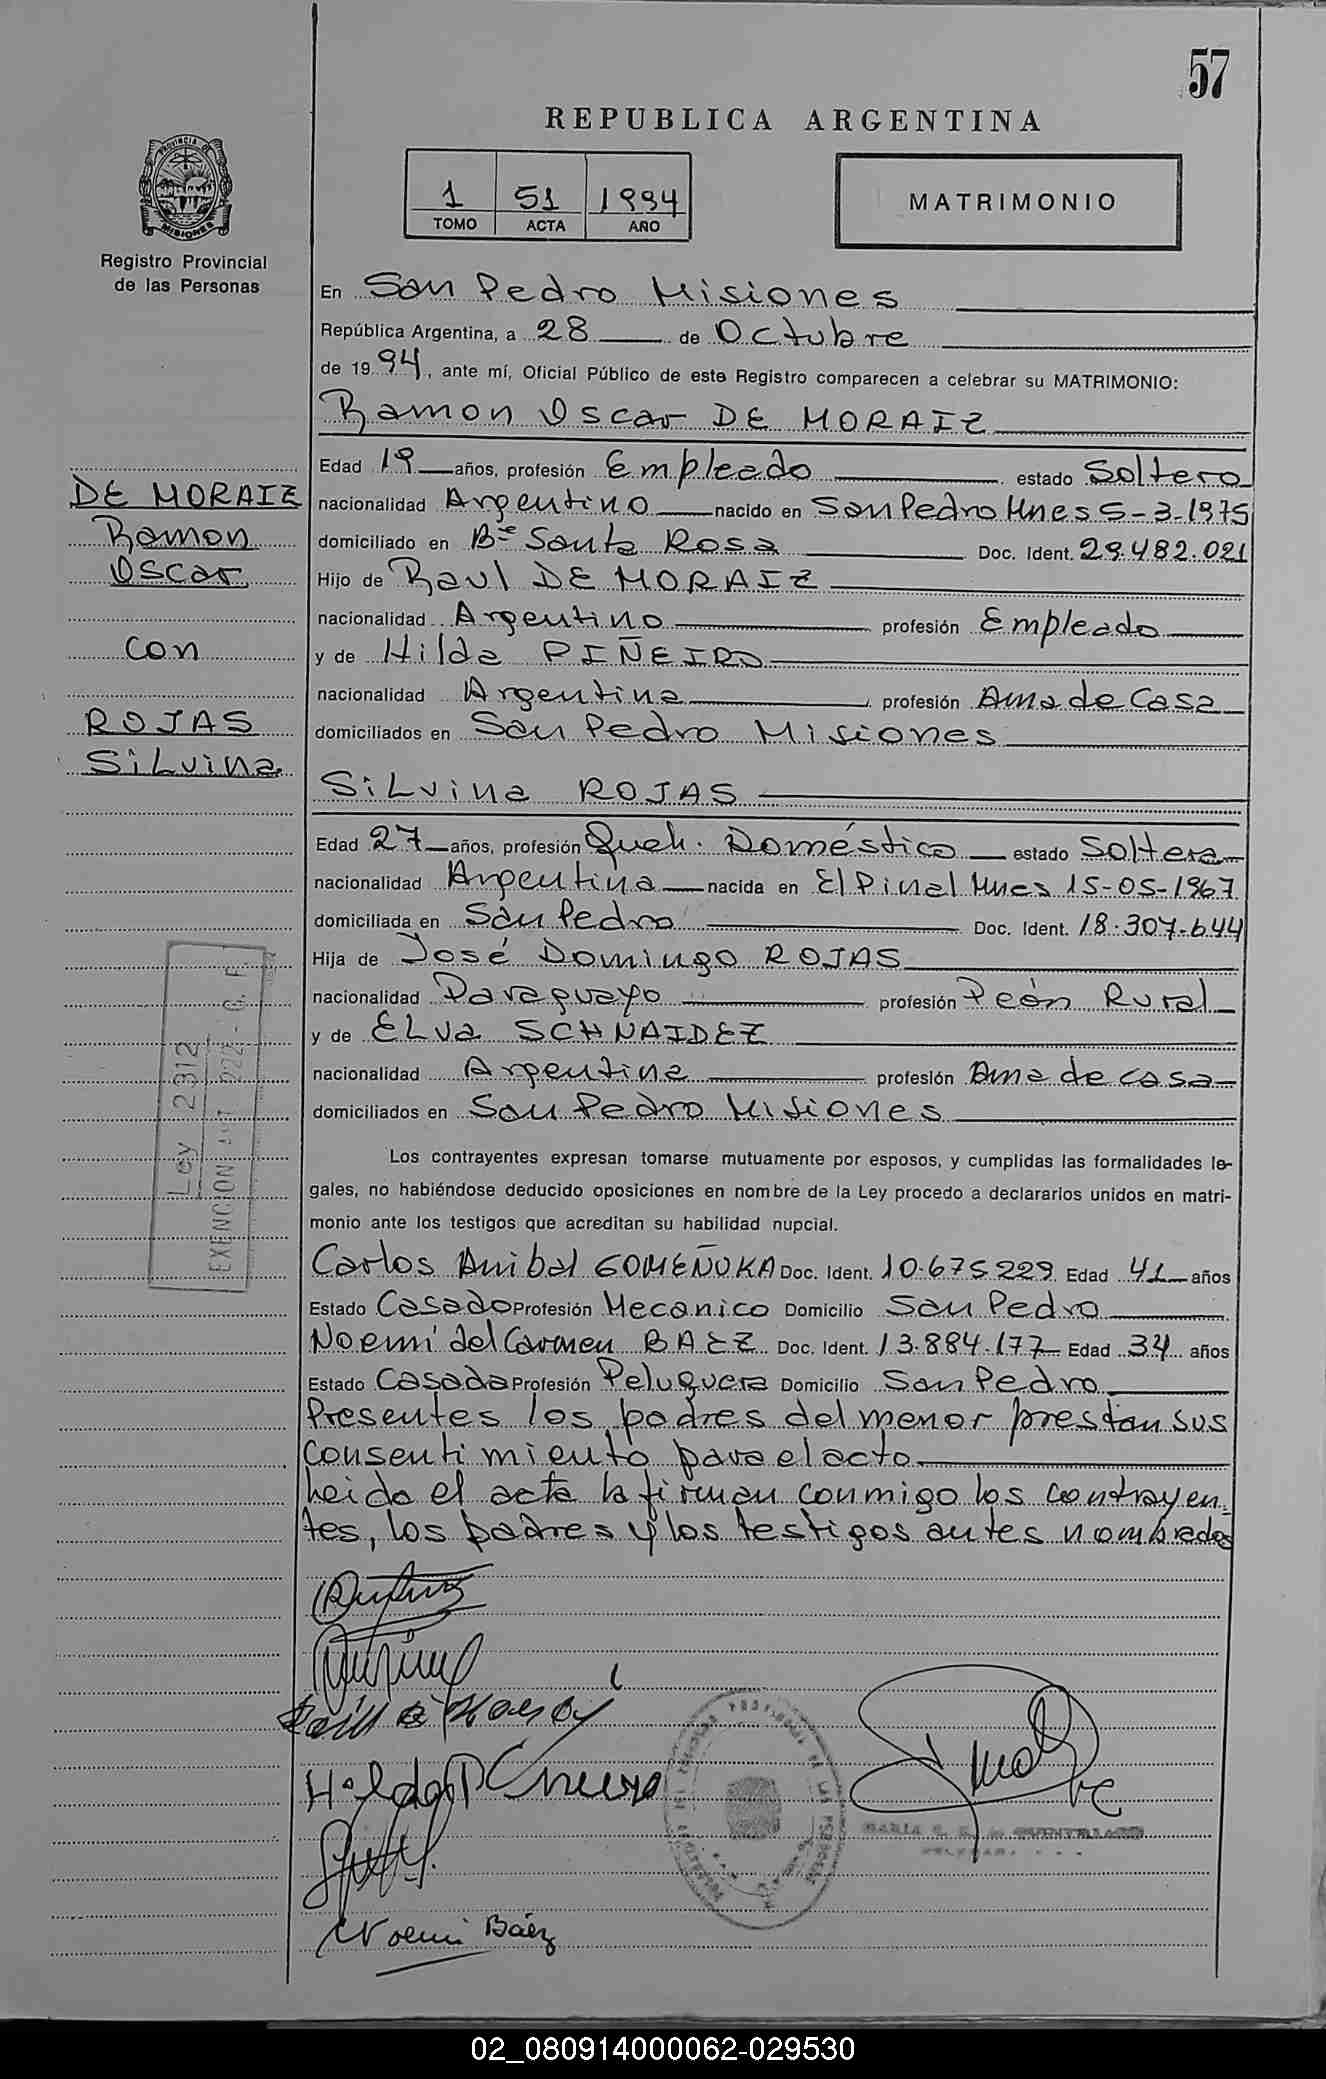 57
REPUBLICA ARGENTINA
1 51 1994
TOMO ACTA AÑO
MATRIMONIO
PROVINCIA DE MISIONES
Registro Provincial
de las Personas
En San Pedro Misiones
República Argentina, a 28 de Octubre
de 1994, ante mí, Oficial Público de este Registro comparecen a celebrar su MATRIMONIO:
Ramon Oscar DE MORAIZ
Edad 19 años, profesión Empleado estado Soltero
nacionalidad Argentino nacido en San Pedro Mnes 5-3-1975
domiciliado en Bº Santa Rosa Doc. Ident. 29.482.021
Hijo de Raul DE MORAIZ
nacionalidad Argentino profesión Empleado
y de Hilda PIÑEIRO
nacionalidad Argentina profesión Ama de Casa
domiciliados en San Pedro Misiones
DE MORAIZ
Ramon
Oscar
con
ROJAS
Silvina
Silvina ROJAS
Edad 27 años, profesión Queh. Doméstico estado Soltera
nacionalidad Argentina nacida en El Pinal Mnes 15-05-1967
domiciliada en San Pedro Doc. Ident. 18.307.644
Hija de José Domingo ROJAS
nacionalidad Paraguayo profesión Peón Rural
y de Elva SCHNAIDEZ
nacionalidad Argentina profesión Ama de casa
domiciliados en San Pedro Misiones
Ley 2312
EXENCION
Los contrayentes expresan tomarse mutuamente por esposos, y cumplidas las formalidades le-
gales, no habiéndose deducido oposiciones en nombre de la Ley procedo a declararlos unidos en matri-
monio ante los testigos que acreditan su habilidad nupcial.
Carlos Anibal GOMEÑUKA Doc. Ident. 10.675229 Edad 41 años
Estado Casado Profesión Mecanico Domicilio San Pedro
Noemí del Carmen BAEZ Doc. Ident. 13.884.177 Edad 34 años
Estado Casada Profesión Peluquera Domicilio San Pedro
Presentes los padres del menor prestan sus
consentimiento para el acto
Leido el acta la firman conmigo los contrayen=
tes, los padres y los testigos antes nombrados
Hilda Piñeiro
Noemi Báez
02_080914000062-029530